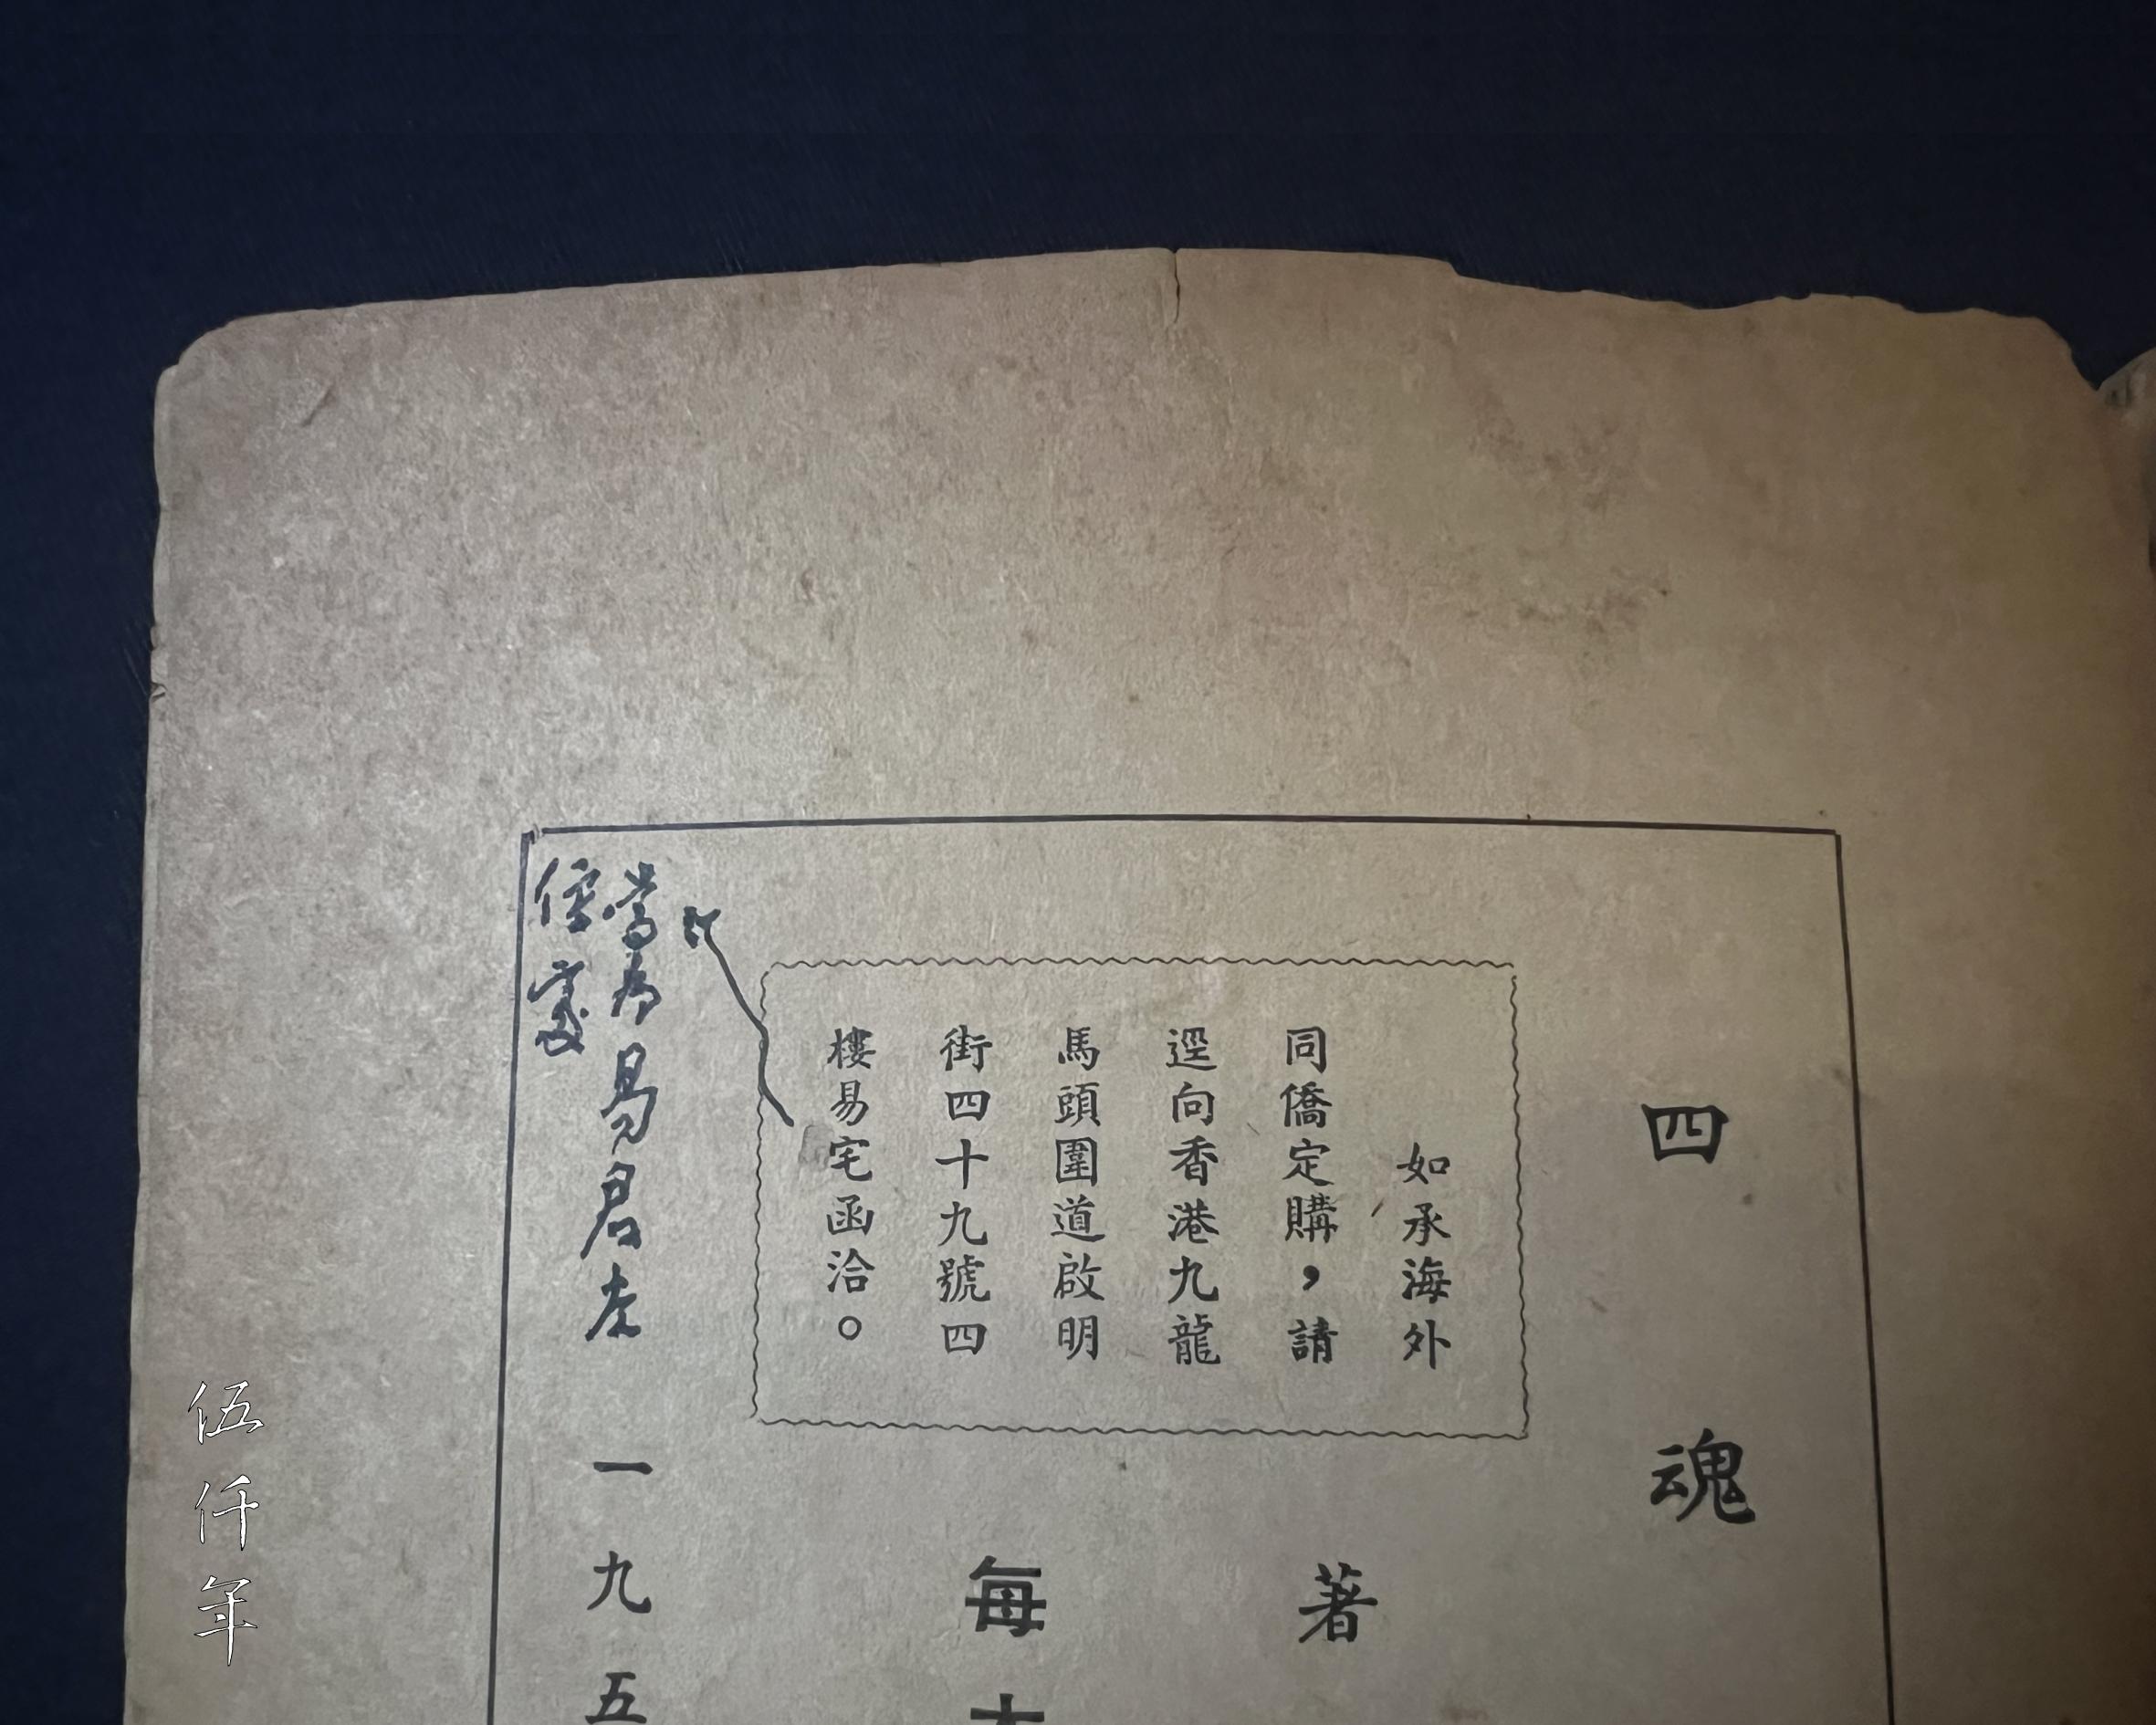 四魂
如承海外
同僑定購，請
逕向香港九龍
馬頭圍道啟明
街四十九號四
樓易宅函洽。
著
每
為易君左
一九五
伍仟年